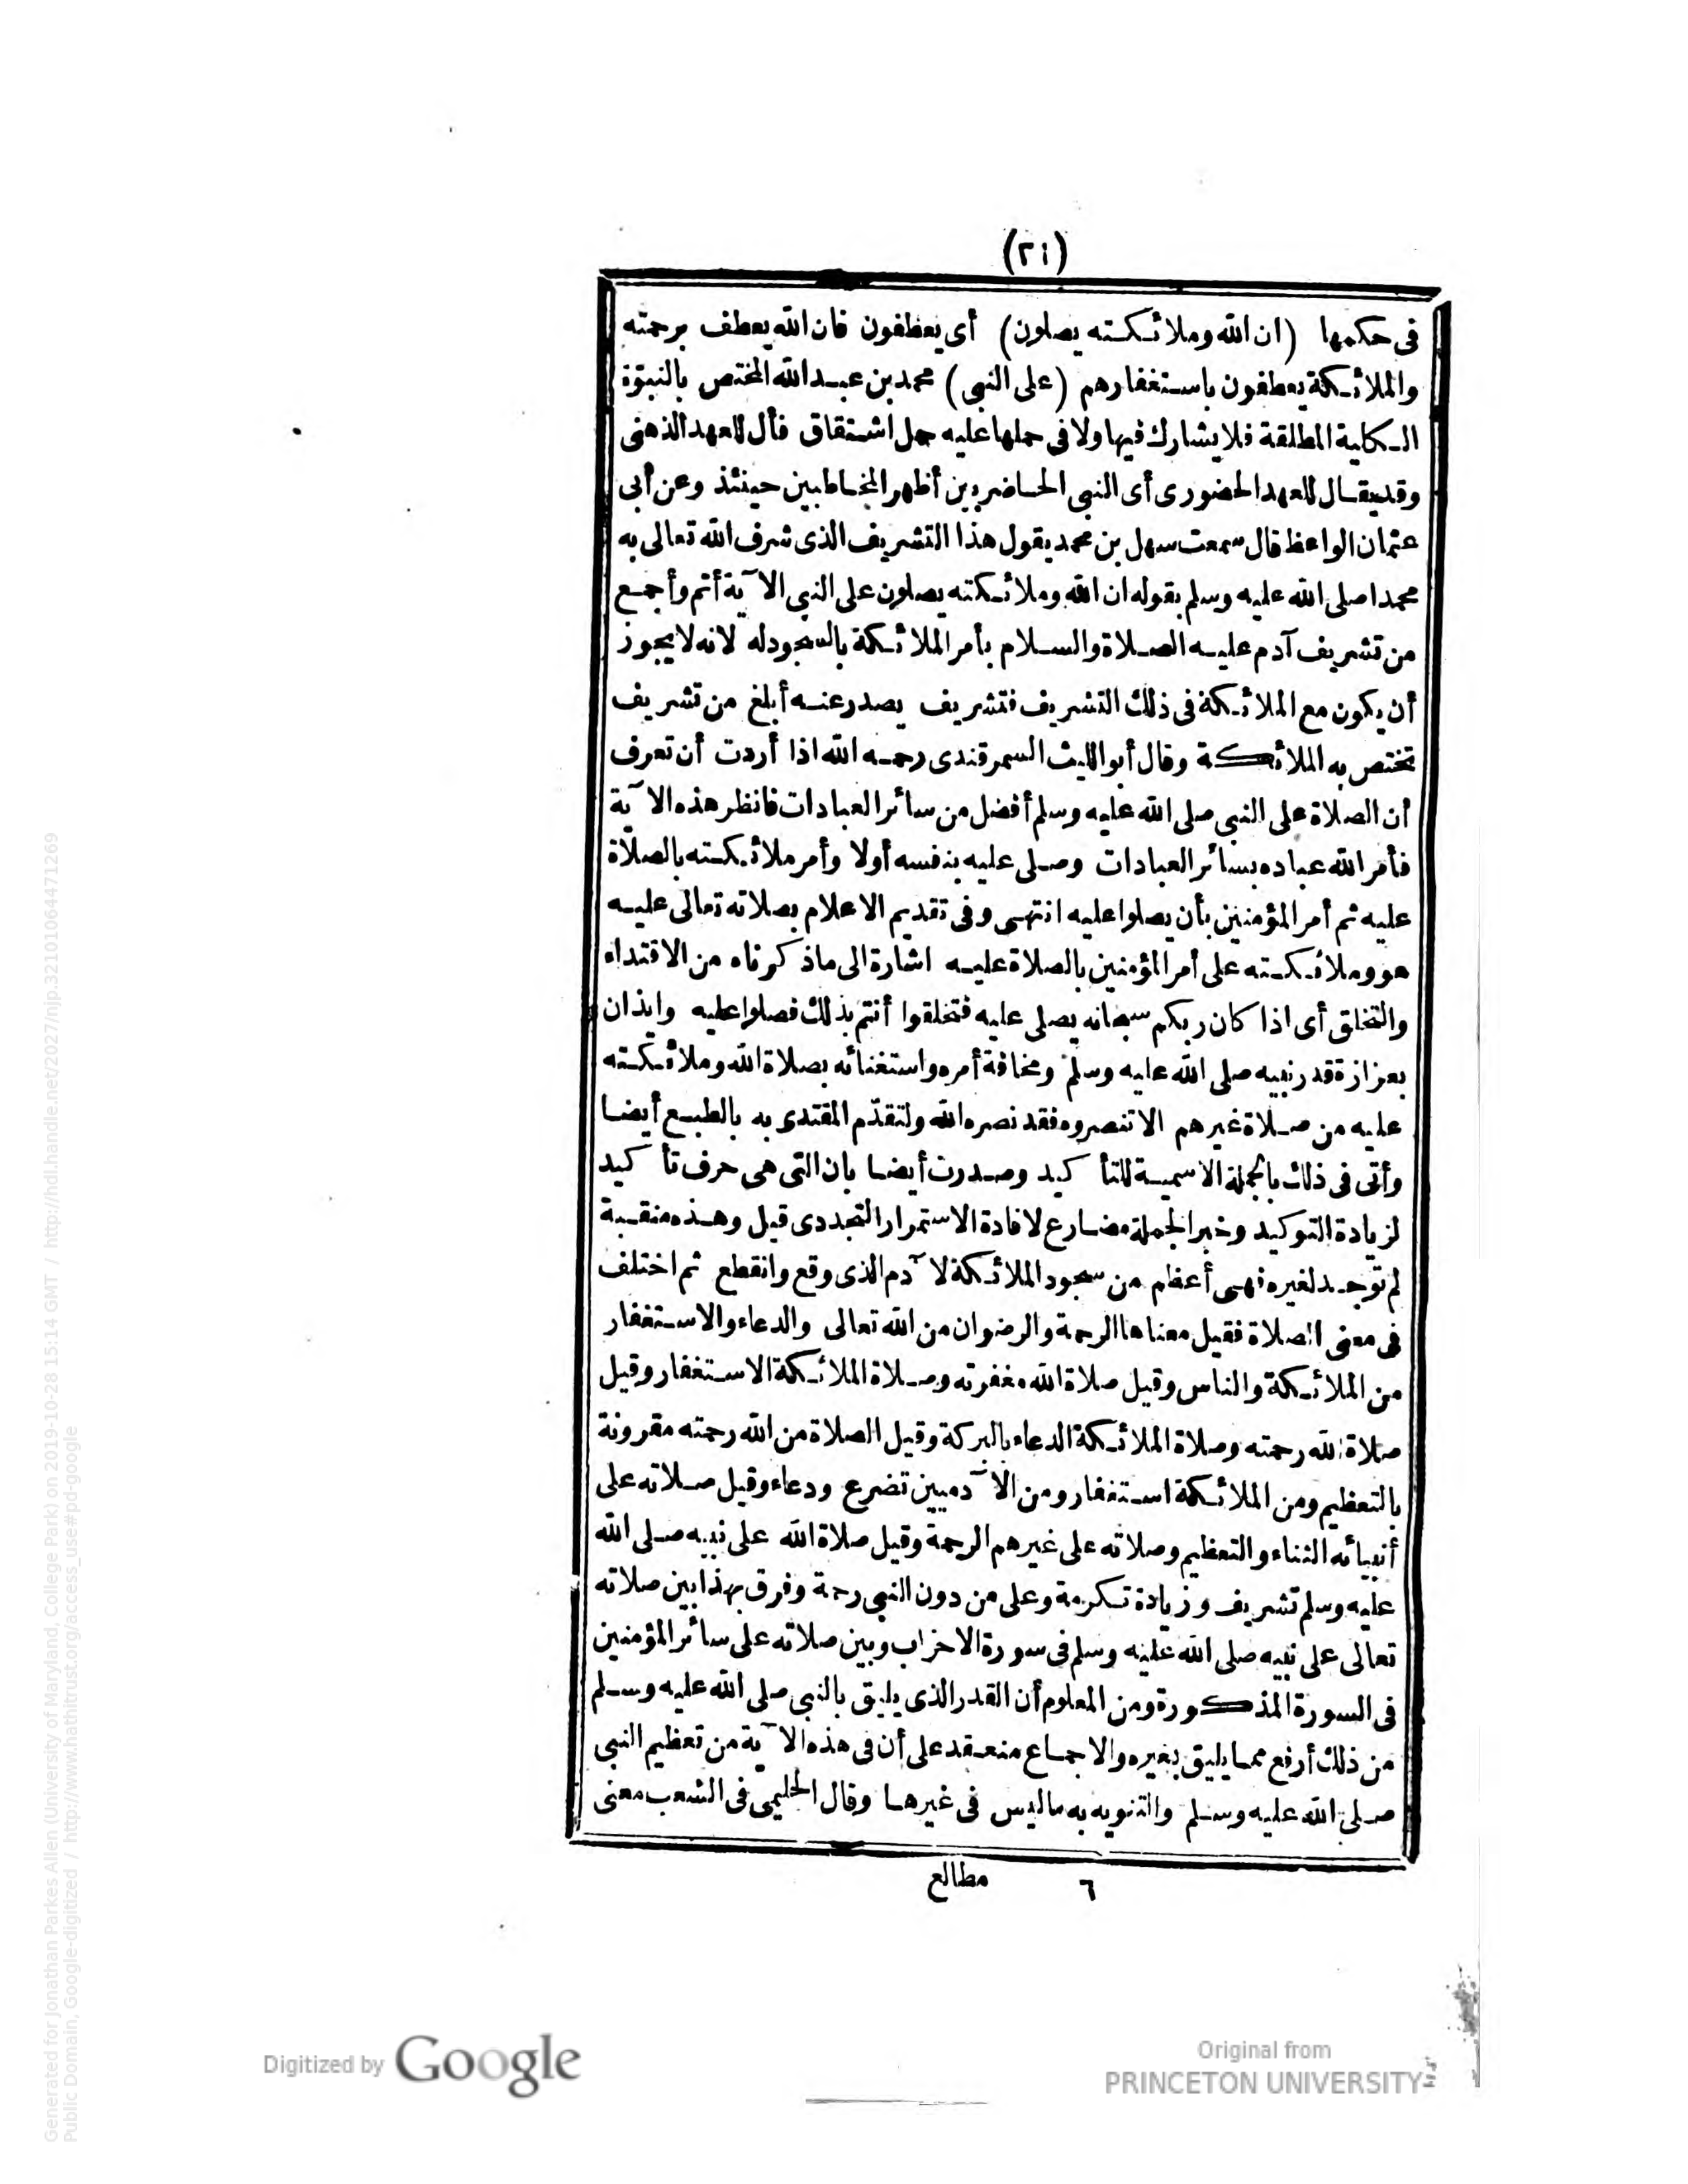 (٢١)
فى حكمها (ان الله وملائكته يصلون) أى يعطفون فان الله يعطف برحمته
والملائكة يعطفون باستغفارهم (على النبى) محمد بن عبد الله المختص بالنبوّة
الكلية المطلقة فلا يشارك فيها ولا فى حملها عليه حمل اشتقاق فأل للعهد الذهنى
وقد يقال للعهد الحضورى أى النبى الحاضر بين أظهر المخاطبين حينئذ وعن أبى
عثمان الواعظ قال سمعت سهل بن محمد يقول هذا التشريف الذى شرف الله تعالى به
محمدا صلى الله عليه وسلم بقوله ان الله وملائكته يصلون على النبى الآية أتم وأجمع
من تشريف آدم عليه الصلاة والسلام بأمر الملائكة بالسجود له لانه لا يجوز
أن يكون مع الملائكة فى ذلك التشريف فتشريف يصدر عنه أبلغ من تشريف
تختص به الملائكة وقال أبو الليث السمرقندى رحمه الله اذا أردت أن تعرف
أن الصلاة على النبى صلى الله عليه وسلم أفضل من سائر العبادات فانظر هذه الآية
فأمر الله عباده بسائر العبادات وصلى عليه بنفسه أولا وأمر ملائكته بالصلاة
عليه ثم أمر المؤمنين بأن يصلوا عليه انتهى وفى تقديم الاعلام بصلاته تعالى عليه
هو وملائكته على أمر المؤمنين بالصلاة عليه اشارة الى ماذكرناه من الاقتداء
والتخلق أى اذا كان ربكم سبحانه يصلى عليه فتخلقوا أنتم بذلك فصلوا عليه وايذان
بعزازة قدر نبيه صلى الله عليه وسلم وفخافة أمره واستغنائه بصلاة الله وملائكته
عليه من صلاة غيرهم الا تنصروه فقد نصره الله ولتقدّم المقتدى به بالطبع أيضا
وأتى فى ذلك بالجملة الاسمية للتأكيد وصدرت أيضا بان التى هى حرف تأكيد
لزيادة التوكيد وخبر الجملة مضارع لافادة الاستمرار التجددى قيل وهذه منقبة
لم توجد لغيره فهى أعظم من سجود الملائكة لآدم الذى وقع وانقطع ثم اختلف
فى معنى الصلاة فقيل معناها الرحمة والرضوان من الله تعالى والدعاء والاستغفار
من الملائكة والناس وقيل صلاة الله مغفرته وصلاة الملائكة الاستغفار وقيل
صلاة الله رحمته وصلاة الملائكة الدعاء بالبركة وقيل الصلاة من الله رحمته مقرونة
بالتعظيم ومن الملائكة استغفار ومن الآدميين تضرع ودعاء وقيل صلاته على
أنبيائه الثناء والتعظيم وصلاته على غيرهم الرحمة وقيل صلاة الله على نبيه صلى الله
عليه وسلم تشريف وزيادة تكرمة وعلى من دون النبى رحمة وفرق بهذا بين صلاته
تعالى على نبيه صلى الله عليه وسلم فى سورة الاحزاب وبين صلاته على سائر المؤمنين
فى السورة المذكورة ومن المعلوم أن القدر الذى يليق بالنبى صلى الله عليه وسلم
من ذلك أرفع مما يليق بغيره والاجماع منعقد على أن فى هذه الآية من تعظيم النبى
صلى الله عليه وسلم والتنويه به ماليس فى غيرها وقال الحليمى فى الشعب معنى
٦ مطالع
Digitized by Google
Original from
PRINCETON UNIVERSITY
Generated for Jonathan Parkes Allen (University of Maryland, College Park) on 2019-10-28 15:14 GMT / http://hdl.handle.net/2027/njp.32101064471269
Public Domain, Google-digitized / http://www.hathitrust.org/access_use#pd-google